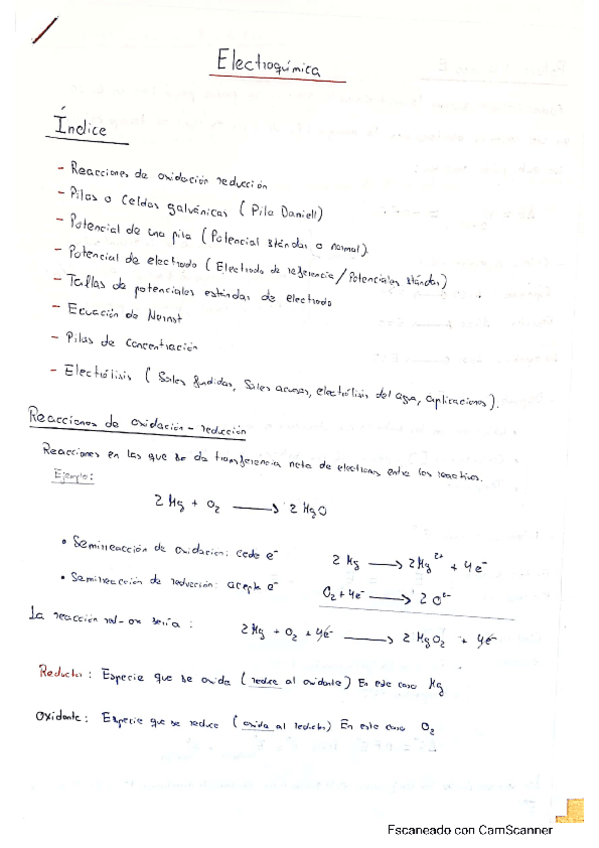 Electroquímica
Índice
- Reacciones de oxidación reducción
- Pilas o Celdas galvánicas ( Pila Daniell)
- Potencial de una pila ( Potencial stándar o normal)
- Potencial de electrodo ( Electrodo de referencia / Potenciales stándar)
- Tallas de potenciales estándar de electrodo
- Ecuación de Nernst
- Pilas de Concentración
- Electrólisis ( Sales fundidas, Sales acuosas, electrólisis del agua, aplicaciones).
Reacciones de oxidación - reducción
Reacciones en las que se da transferencia neta de electrones entre los reactivos.
Ejemplo:
2 Mg + O₂ → 2 MgO
• Semirreacción de oxidación: cede e⁻ 2 Mg → 2 Mg²⁺ + 4e⁻
• Semirreacción de reducción: acepta e⁻ O₂ + 4e⁻ → 2 O²⁻
La reacción red-ox sería : 2 Mg + O₂ + 4e⁻ → 2 MgO₂ + 4e⁻
Reductor : Especie que se oxida ( reduce al oxidante ) En este caso Mg
Oxidante : Especie que se reduce ( oxida al reductor) En este caso O₂
Escaneado con CamScanner